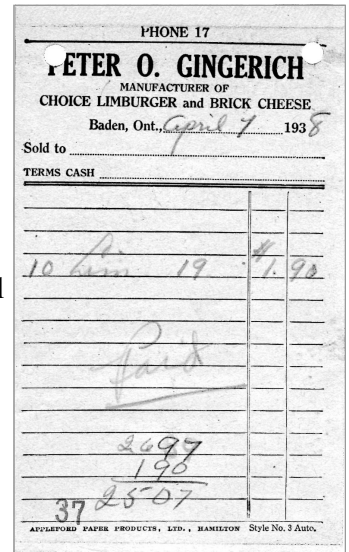 PHONE 17
PETER O. GINGERICH
MANUFACTURER OF
CHOICE LIMBURGER and BRICK CHEESE
Baden, Ont., April 7 1938
Sold to
TERMS CASH
10 Lim 19 $1.90
Paid
2697
190
2507
37
APPLEFORD PAPER PRODUCTS, LTD., HAMILTON Style No. 3 Auto.